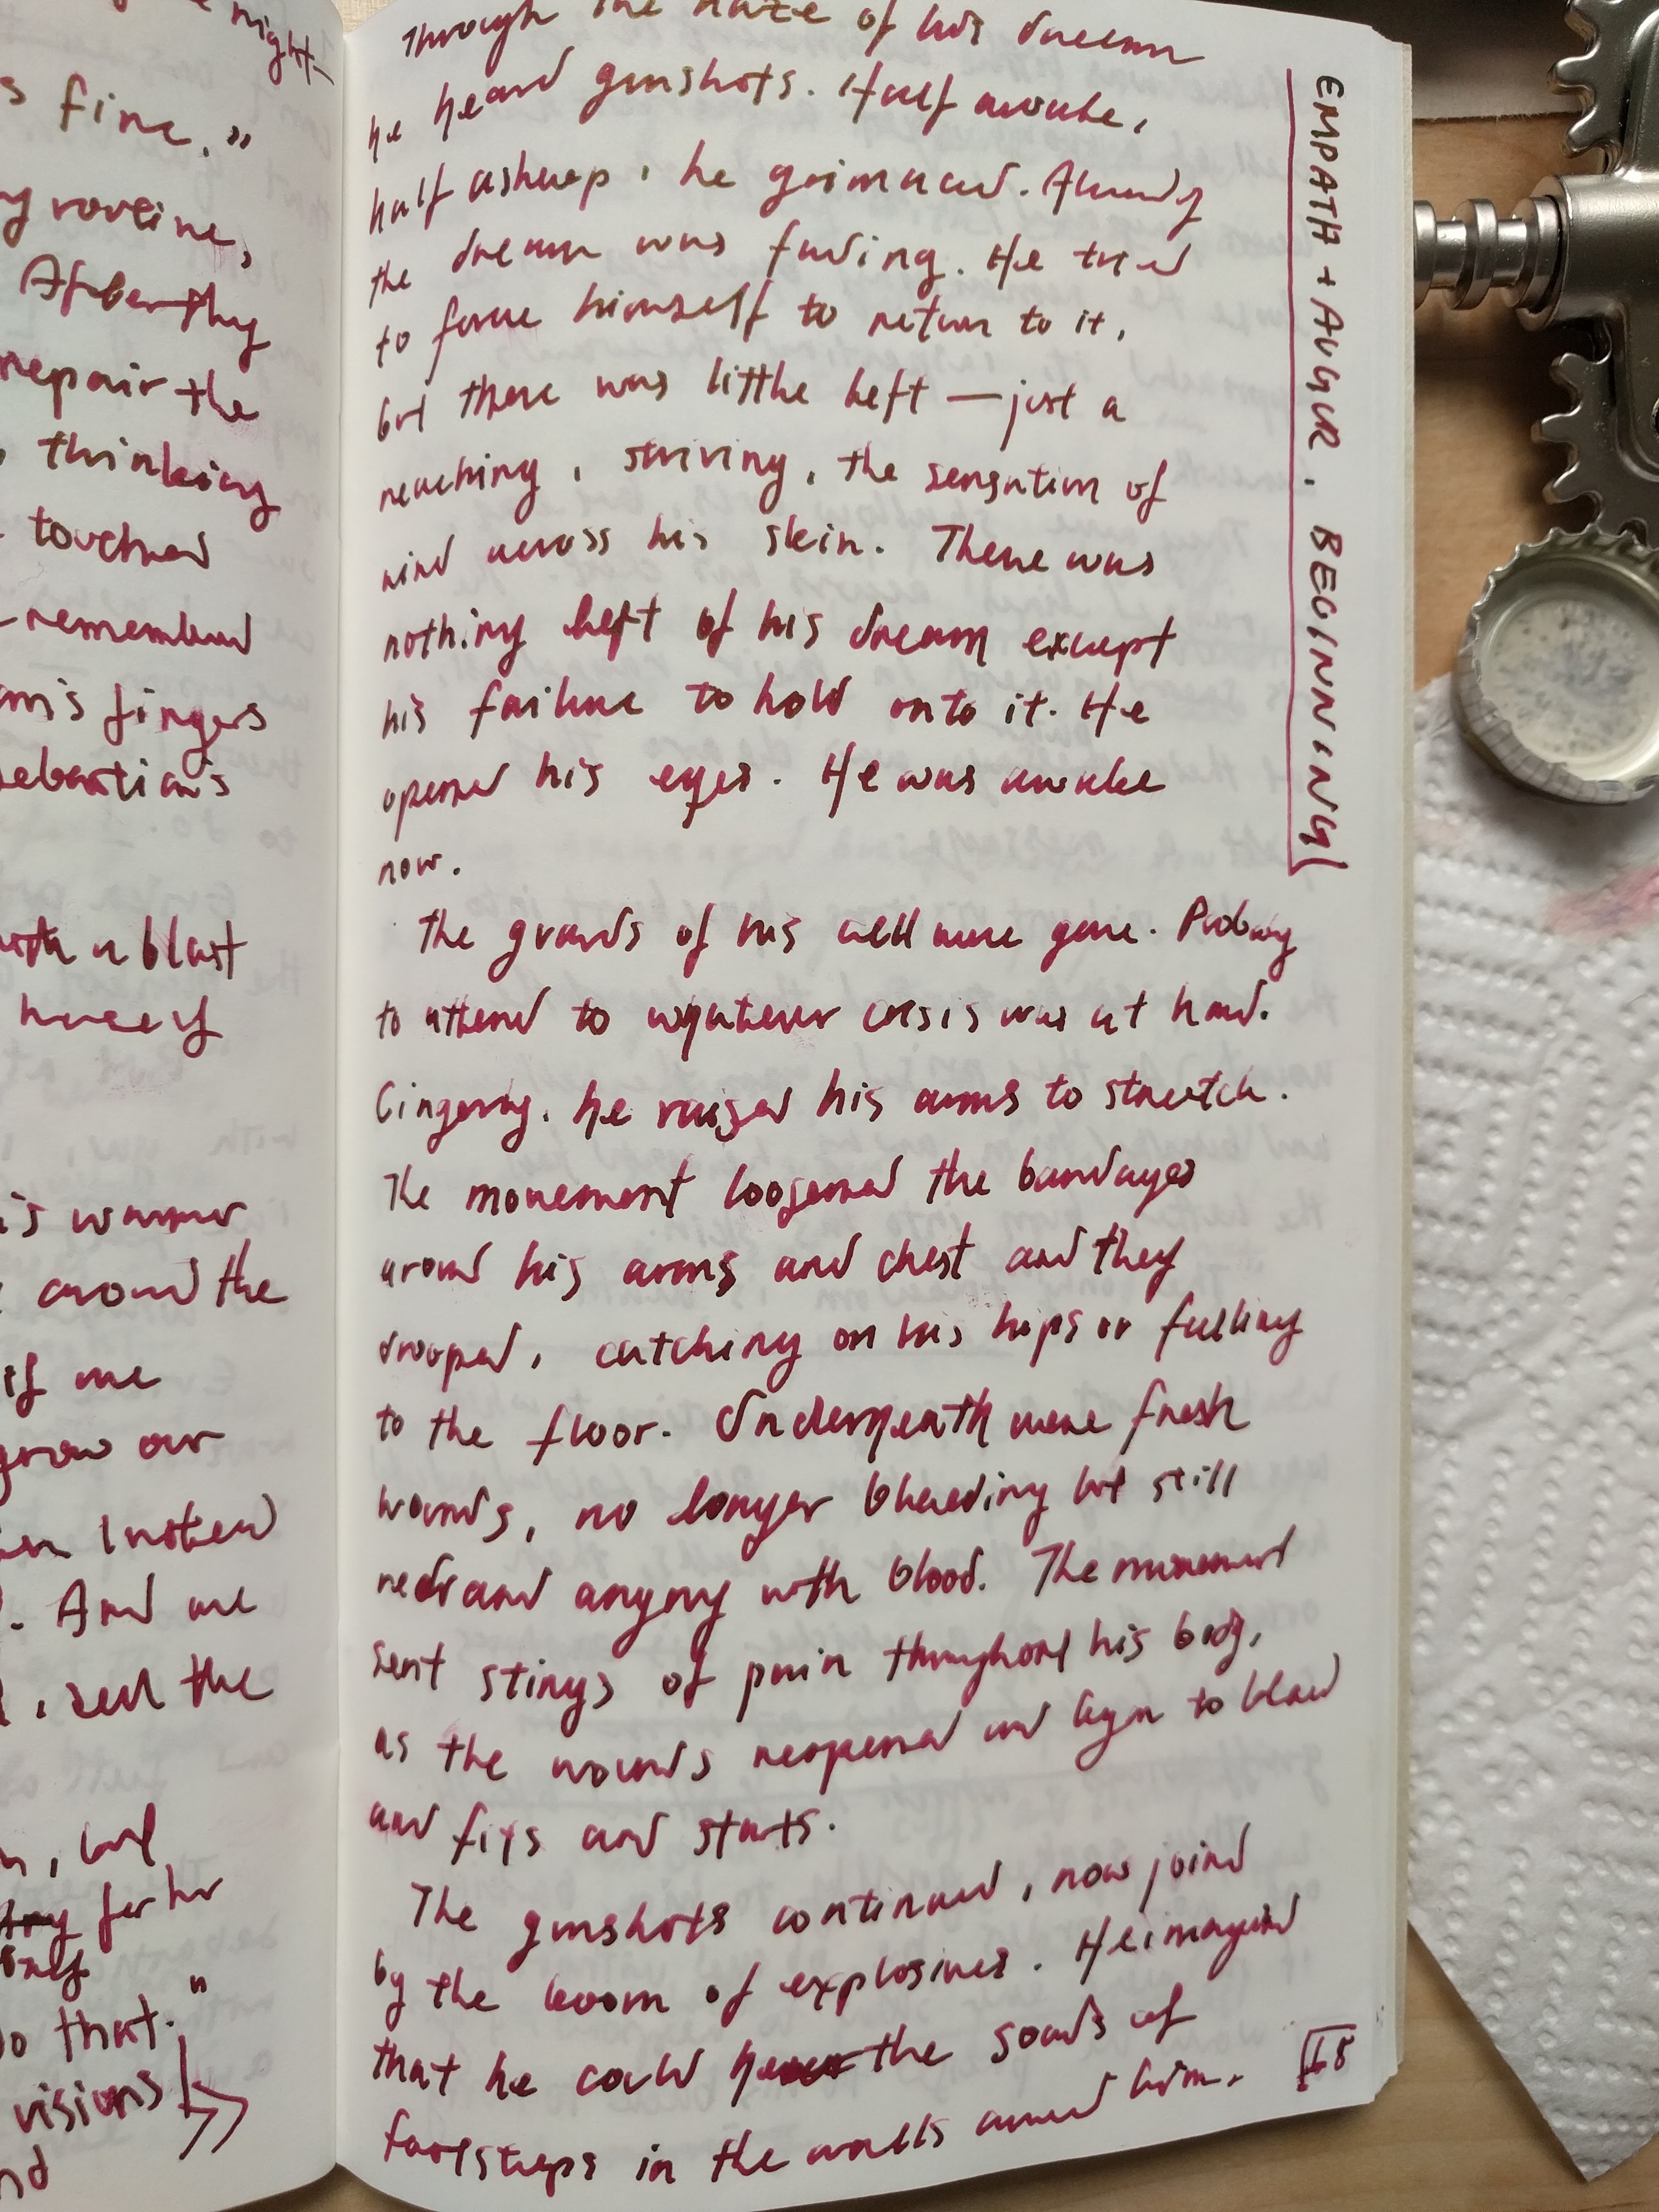 night—
s fine."
routine,
After they
repair the
thinking
touched
remembered
fingers
Sebastian's
with a blast
is warmer
around the
if we
grow our
And we
, sell the
, but
for her
do that."
visions
Through the haze of his dream
he heard gunshots. Half awake,
half asleep, he grimaced. Already
the dream was fading. He tried
to force himself to return to it,
but there was little left — just a
reaching, striving, the sensation of
wind across his skin. There was
nothing left of his dream except
his failure to hold onto it. He
opened his eyes. He was awake
now.
The guards of his cell were gone. Probably
to attend to whatever crisis was at hand.
Gingerly, he raised his arms to stretch.
The movement loosened the bandages
around his arms and chest and they
drooped, catching on his hips or falling
to the floor. Underneath were fresh
wounds, no longer bleeding but still
red and angry with blood. The movement
sent stings of pain throughout his body,
as the wounds reopened and began to bleed
and fits and starts.
The gunshots continued, now joined
by the boom of explosives. He imagined
that he could hear the sounds of
footsteps in the walls around him.
EMPATH + AUGUR. BEGINNING
18